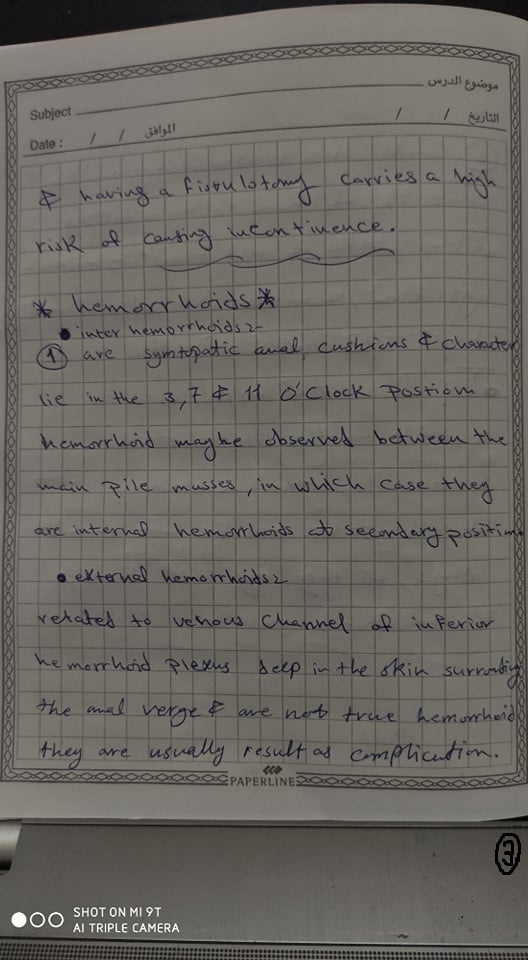 موضوع الدرس
Subject
التاريخ / / الموافق / / Date :
& having a fistulotomy carries a high
risk of causing incontinence.
* hemorrhoids *
• inter hemorrhoids :-
① are symtopatic anal cushions & character
lie in the 3,7 & 11 O'Clock Postion
hemorrhoid maybe observed between the
main Pile masses, in which case they
are internal hemorrhoids at secondary position
• external hemorrhoids :-
related to venous Channel of inferior
hemorrhoid Plexus deep in the skin surrounding
the anal verge & are not true hemorrhoid
they are usually result as complication.
PAPERLINE
③
SHOT ON MI 9T
AI TRIPLE CAMERA